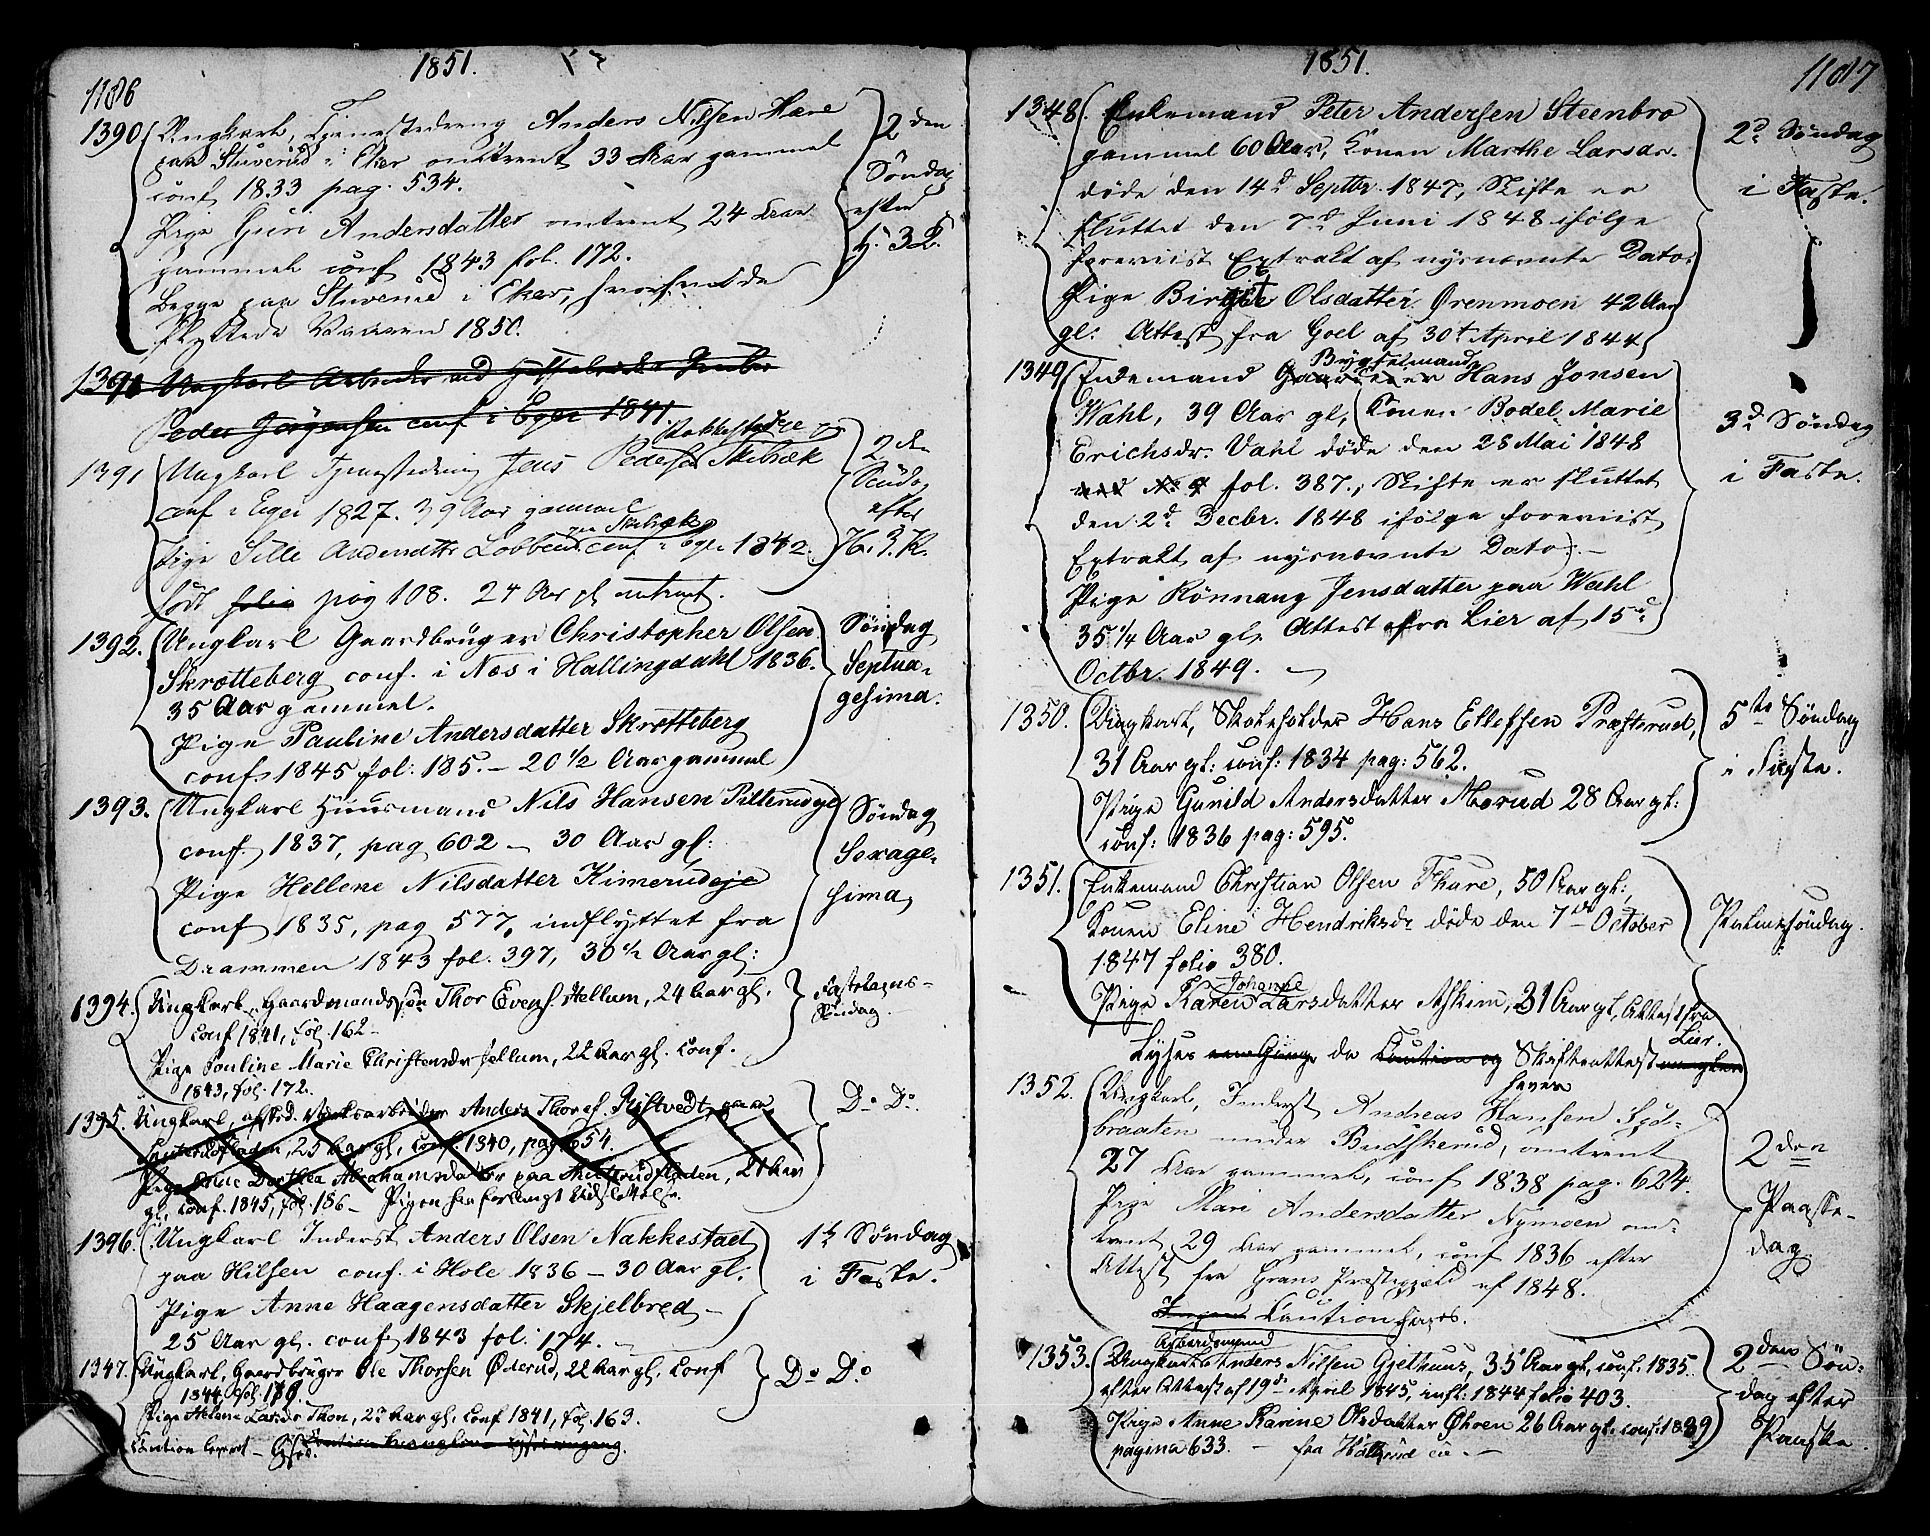 1186
1851.
1390 Ungkarl, Tjenestedreng Anders Nilsen Hære
paa Stuverud i Eker omtrent 33 Aar gammel
conf 1833 pag. 534.
Pige Guri Andersdatter omtrent 24 Aar
gammel conf 1843 fol. 172.
Begge paa Stuverud i Eker, hvorhen de
flyttede Vaaren 1850.
2den
Søndag
efter
H. 3 K.
1391 Ungkarl Arbeider ved
Peder Jørgensen conf i Eger 1841
Nakkestad
1391 Ungkarl Tjenestedreng Jens Pedersen Skibæk
conf i Eger 1827. 39 Aar gammel
paa Skibæk
Pige Sille Andersdatter Lobben conf i Eger 1842.
født folio pag 108. 24 Aar gl omtrent.
2den
Søndag
efter
H. 3. K.
1392. Ungkarl Gaardbruger Christopher Olsen
Skrotteberg conf. i Næs i Hallingdahl 1836.
35 Aar gammel.
Pige Pauline Andersdatter Skrotteberg
conf. 1845 fol: 185. – 20 1/2 Aar gammel
Søndag
Septua-
gesima.
1393. Ungkarl Huusmand Nils Hansen Pilterudeje
conf. 1837, pag 602 – 30 Aar gl:
Pige Hellene Nilsdatter Kimerudeje
conf 1835, pag 577, indflyttet fra
Drammen 1843 fol. 397, 30 1/2 Aar gl:
Søndag
Sexage-
sima,
1394. Ungkarl, Gaardmandssøn Thor Evens. Hellum, 24 Aar gl.
Conf 1841, fol. 162 –
Pige Pouline Marie Christensdr Hellum, 22 Aar gl. Conf.
1843, fol. 172.
Fastelavns-
Søndag.
1395. Ungkarl, afsked. Værksarbeider Anders Thoresen
25 Aar gl, conf. 1840, pag 654.
Pige Anne Dorthea Abrahamsdatter paa 21 Aar
gl, conf. 1845, fol. 186 – Pigen har forlangt Udslettelse.
Do Do.
1396. Ungkarl Inderst Anders Olsen Nakkestad
paa Hilsen conf. i Hole 1836 – 30 Aar gl:
Pige Anne Haagensdatter Skjelbred –
25 Aar gl. conf 1843 fol. 174.
1ste Søndag
i Faste.
1347. Ungkarl, Gaardbruger Ole Thorsen Øderud, 22 Aar gl, Conf
1844, fol
Pige Helene Larsdr Thon, Aar gl. Conf 1841, fol 163.
Caution leveret – Lyses.
Do Do
1851.
1187
1348. Enkemand Peter Andersen Steenbro
gammel 60 Aar, Konen Marthe Larsdr.
døde den 14d Septbr. 1847, Skifte er
sluttet den 7d Juni 1848 ifølge
foreviist Extrakt af nysnævnte Dato.
Pige Birgit Olsdatter Ørenmoen 42 Aar
gl: Attest fra Goel af 30t April 1844
2d Søndag
i Faste.
Bygselmand
1349 Enkemand Gaardbruger Hans Jonsen
Wahl, 39 Aar gl, (Konen Bodel Marie
Erichsdr. Vahl døde den 28 Mai 1848
ved No 9 fol. 387., Skifte er sluttet
den 2d Decbr. 1848 ifølge foreviist
Extrakt af nysnævnte Dato). –
Pige Rønnaug Jensdatter paa Wahl
35 1/4 Aar gl. Attest fra Lier af 15d
Octbr. 1849. –
3d Søndag
i Faste.
1350. Ungkarl, Skoleholder Hans Ellefsen Præsterud,
31 Aar gl: conf: 1834 pag: 562.
Pige Gunild Andersdatter Morud 28 Aar gl:
conf: 1836 pag: 595.
5te Søndag
i Faste.
1351. Enkemand Christian Olsen Thure, 50 Aar gl:,
Konen Eline Hendriksdr døde den 7de October
1847 folio 380.
Johanne
Pige Karen Larsdatter Askim, 31 Aar gl, Attest fra
Lier.
Lyses da Caution og Skifteattest mangler
haves
Palmesøndag.
1352. Ungkarl, Inderst Andreas Hansen Syd-
braaten under Buskerud, omtrent
27 Aar gammel, conf 1838 pag. 624.
Pige Mari Andersdatter Nymoen om-
trent 29 Aar gammel, conf 1836 efter
Attest fra Grans Præstegjeld af 1848.
Ingen Caution haves.
2den
Paaske-
dag.
Arbeidsmand
1353. Ungkarl Anders Nilsen Gjethuus, 35 Aar gl, conf. 1835
efter Attest af 19de April 1845 inft: 1844 folio 403.
Pige Anne Karine Olsdatter Øhren 26 Aar gl: conf: 1839
pagina 633. –
2den Søn-
dag efter
Paaske.